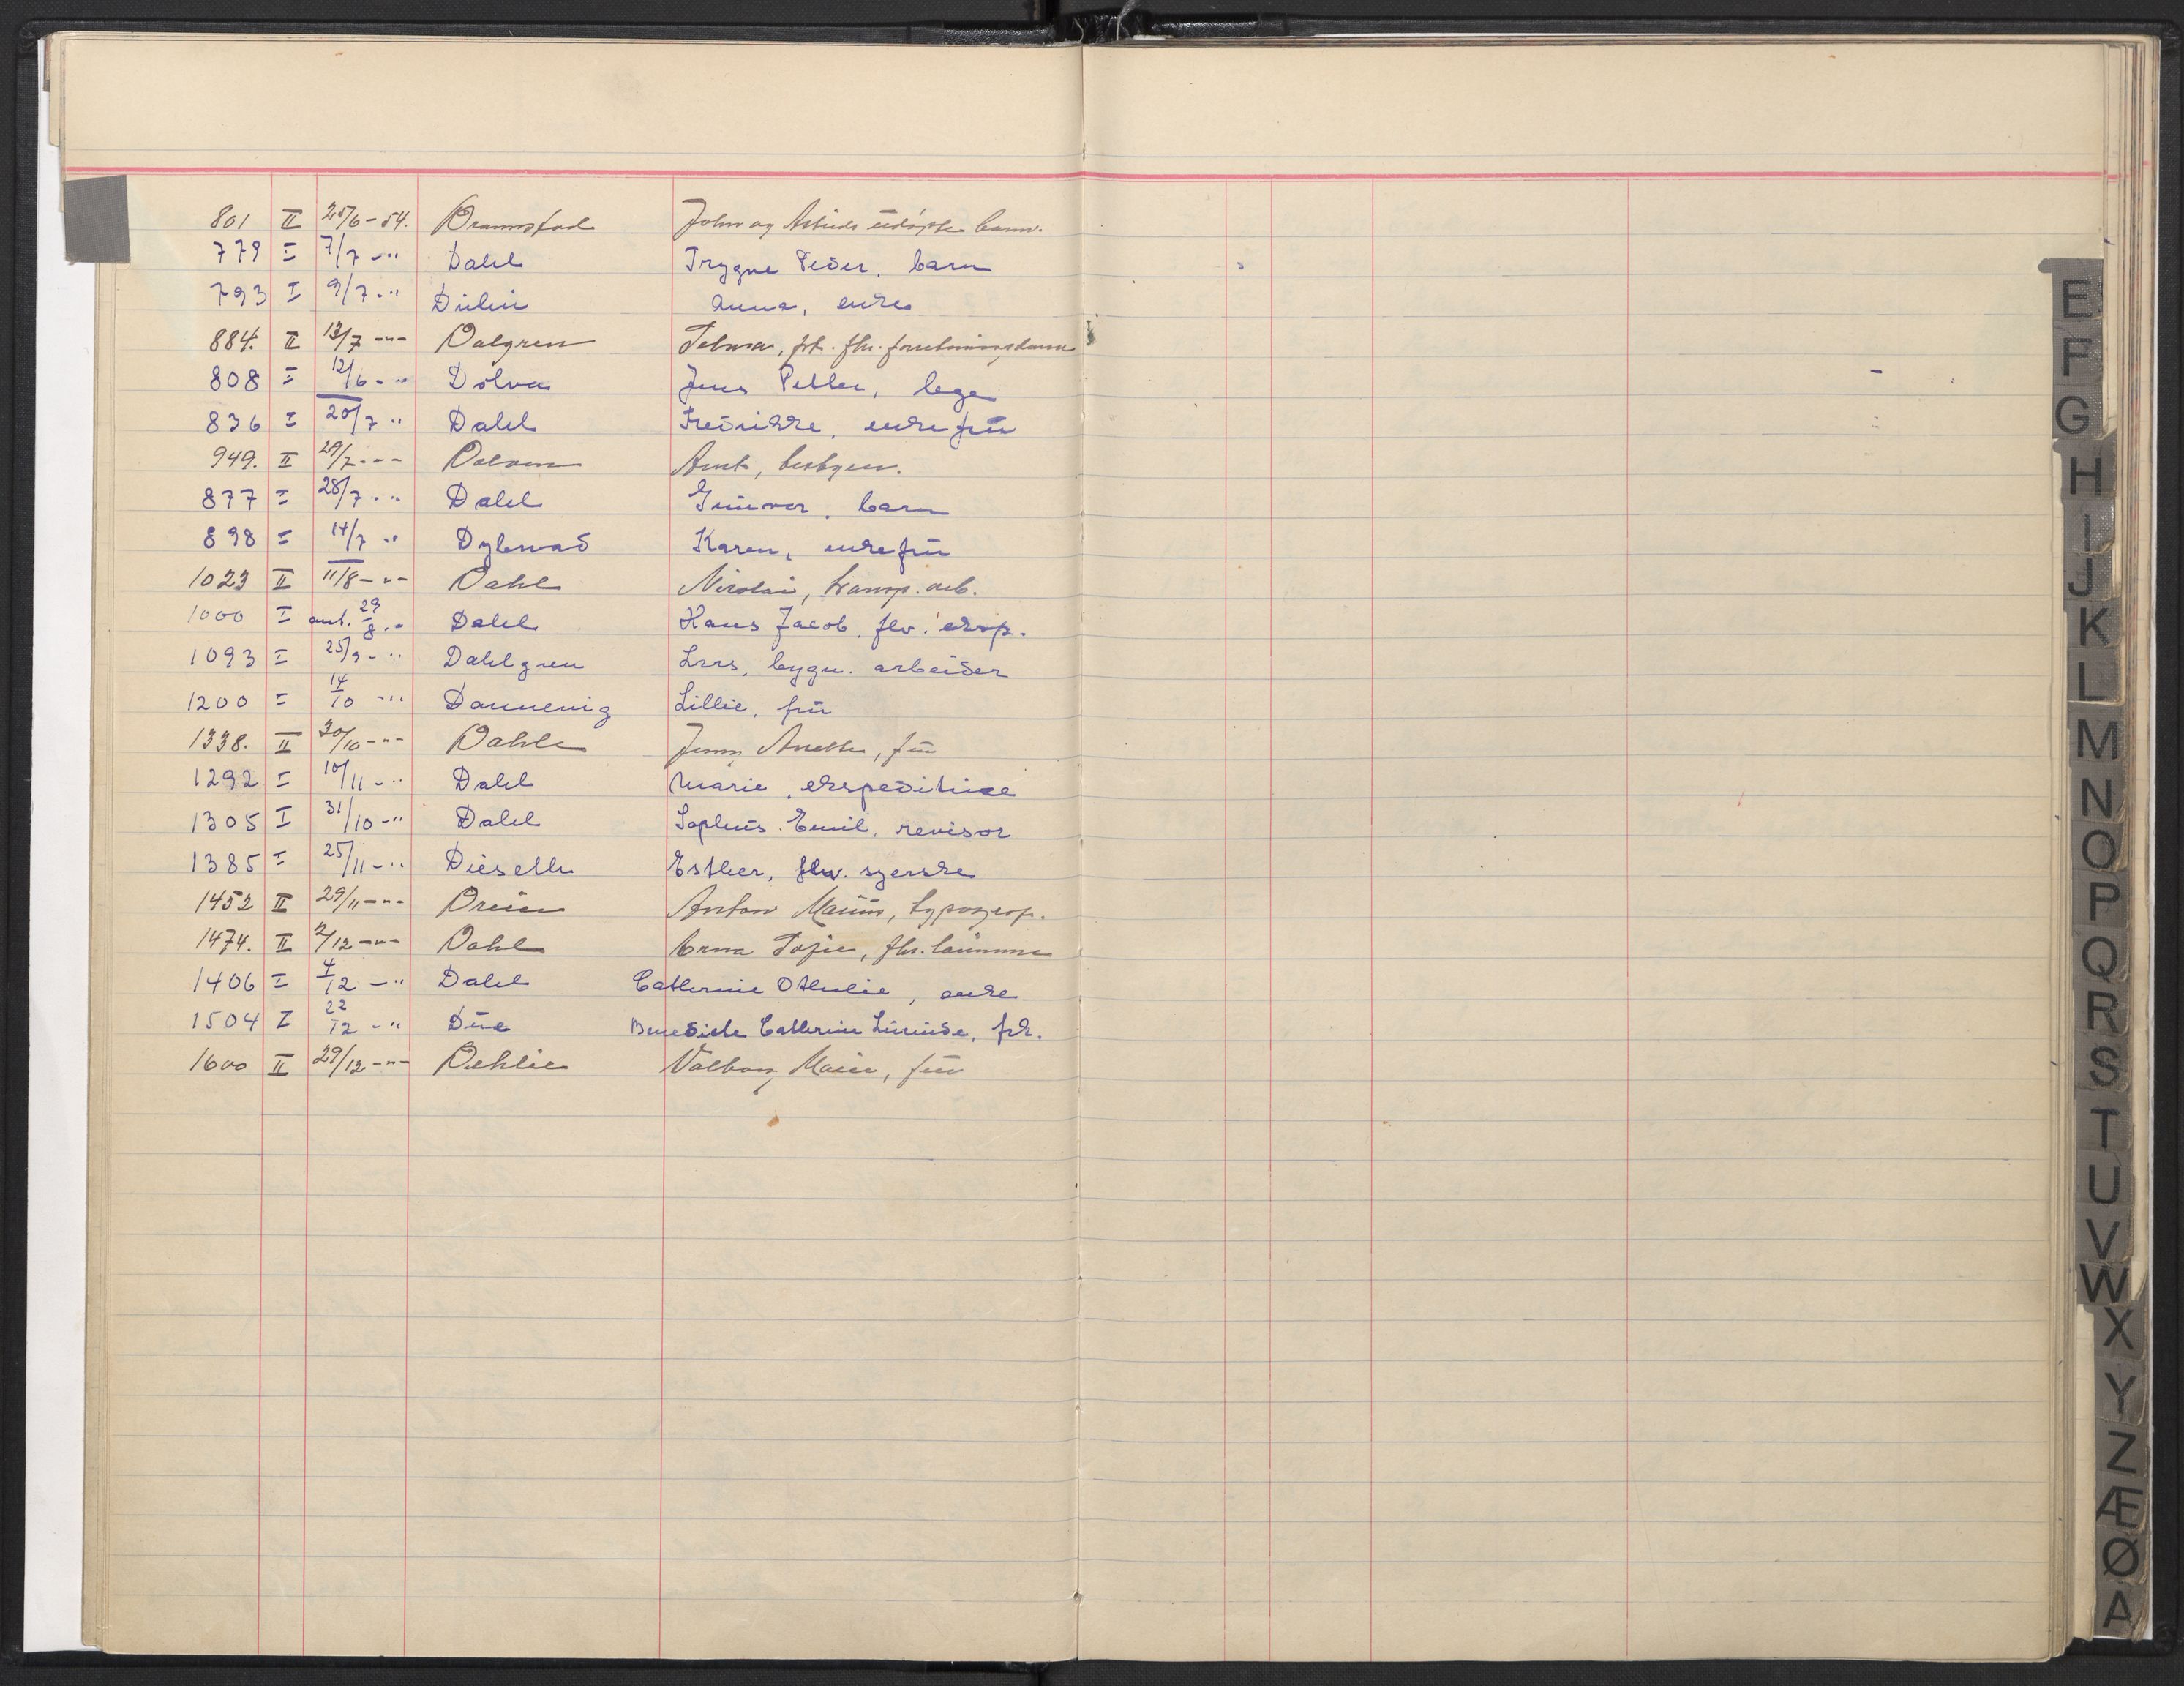 801 II 25/6-54. Dramstad John og Astrids udøpte barn.
779 I 7/7-" Dahl Trygve Peder, barn
793 I 9/7-" Anna, enke
884. II 13/7-"- Dalgren Selma, frk. fhv. forretningsdame
808 I 12/6-" Dølva Jens Petter, lege
836 I 20/7 " Dahl Fredrikke, enkefrü
949. II 29/7-"- Arnt, bestyrer.
877 I 28/7-" Dahl Günvor, barn
898 I 14/7 " Dybwad Karen, enkefrü
1023 II 11/8-"- Dahl Nicolai, transp. arb.
1000 I ant. 29/8.- Dahl Hans Jacob, fhv. eksp.
1093 I 25/9-" Dahlgren Lars, bygn. arbeider
1200 I 14/10-" Dannevig Lillie, frü
1338. II 30/10-"- Dahle Jenny Anette, frü
1292 I 10/11-" Dahl Marie, ekspeditrice
1305 I 31/10-" Dahl Sophüs Emil, revisor
1385 I 25/11-" Dieseth Esther, fhv. syerske
1452 II 29/11-"- Anton Marius, typograf.
1474. II 2/12-"- Dahl Erna Sofie, fhv.
1406 I 4/12-" Dahl Cathrine Othilie, enke
1504 I 22/12-" Düe Benedicte Cathrine, frk.
1600 II 29/12-"- Dehlie Valborg Marie, frü
E
F
G
H
I
J
K
L
M
N
O
P
Q
R
S
T
U
V
W
X
Y
Z
Æ
Ø
A